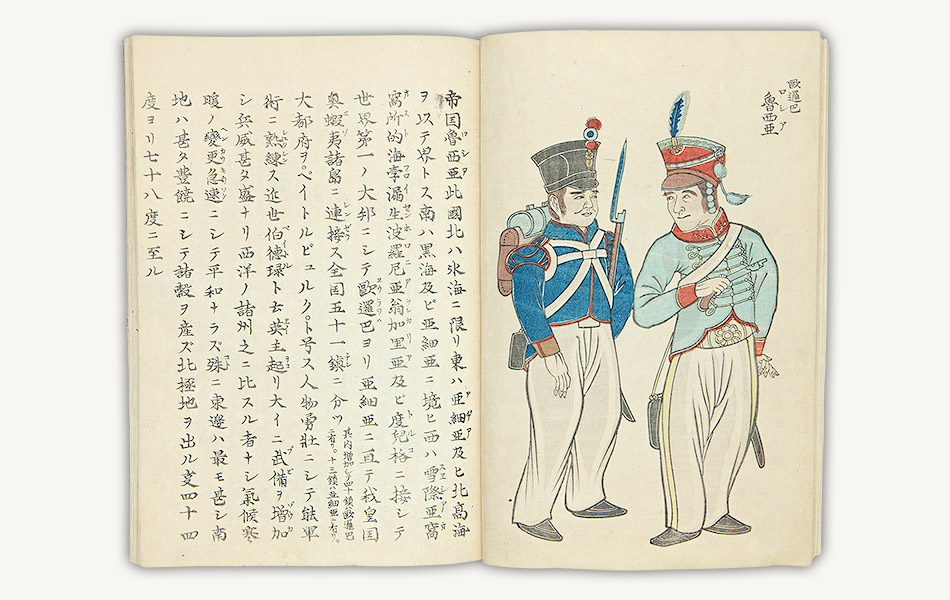 歐邏巴
魯西亜
帝国魯西亜此國北ハ氷海ニ限リ東ハ亜細亜及ヒ北高海
ヲ以テ界トス南ハ黒海及ビ亜細亜ニ境ヒ西ハ雪際亜窩
窩所的海孛漏生波羅尼亜翁加里亜及ビ度兒格ニ接シテ
世界第一ノ大邦ニシテ歐邏巴ヨリ亜細亜ニ亘テ我皇国
奥蝦夷諸島ニ連接ス全国五十一鎮ニ分ツ
大都府ヲペイトルビュルクト号ス人物勇壮ニシテ能軍
術ニ熟練ス近世伯徳琭ト云英主起リ大イニ武備ヲ増加
シ兵威甚タ盛ナリ西洋ノ諸州之ニ比スル者ナシ氣候寒
暖ノ變更急速ニシテ平和ナラズ殊ニ東邊ハ最モ甚シ南
地ハ甚タ豊饒ニシテ諸穀ヲ産ズ北極地ヲ出ル支四十四
度ヨリ七十八度ニ至ル